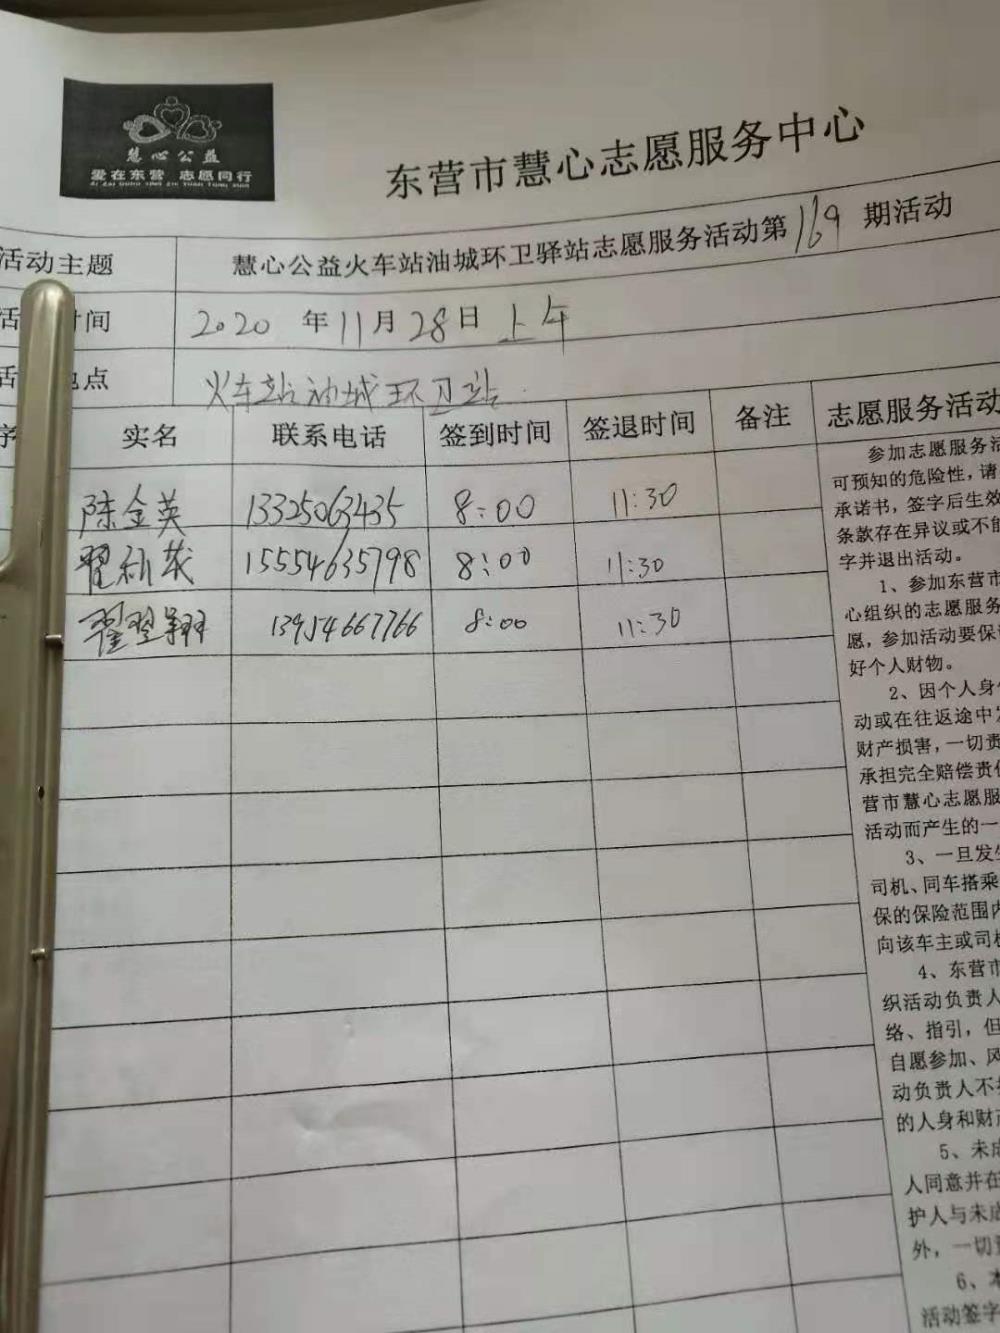 慧心公益
爱在东营 志愿同行
AI ZAI DONG YING ZHI YUAN TONG XING
东营市慧心志愿服务中心
活动主题 慧心公益火车站油城环卫驿站志愿服务活动第169期活动
活 时间 2020 年 11 月 28 日 上午
活 地点 火车站油城环卫站
序 实名 联系电话 签到时间 签退时间 备注 志愿服务活动
陈金英 13325063435 8:00 11:30
翟 茂 15554635798 8:00 11:30
翟翌翔 13954667766 8:00 11:30
参加志愿服务活
可预知的危险性，请
承诺书，签字后生效
条款存在异议或不能
字并退出活动。
1、参加东营市
心组织的志愿服务
愿，参加活动要保
好个人财物。
2、因个人身
动或在往返途中发
财产损害，一切责
承担完全赔偿责任
营市慧心志愿服
活动而产生的一
3、一旦发生
司机、同车搭乘
保的保险范围内
向该车主或司机
4、东营市
织活动负责人
络、指引，但
自愿参加、风
动负责人不
的人身和财产
5、未成
人同意并在
护人与未成
外，一切责
6、本
活动签字